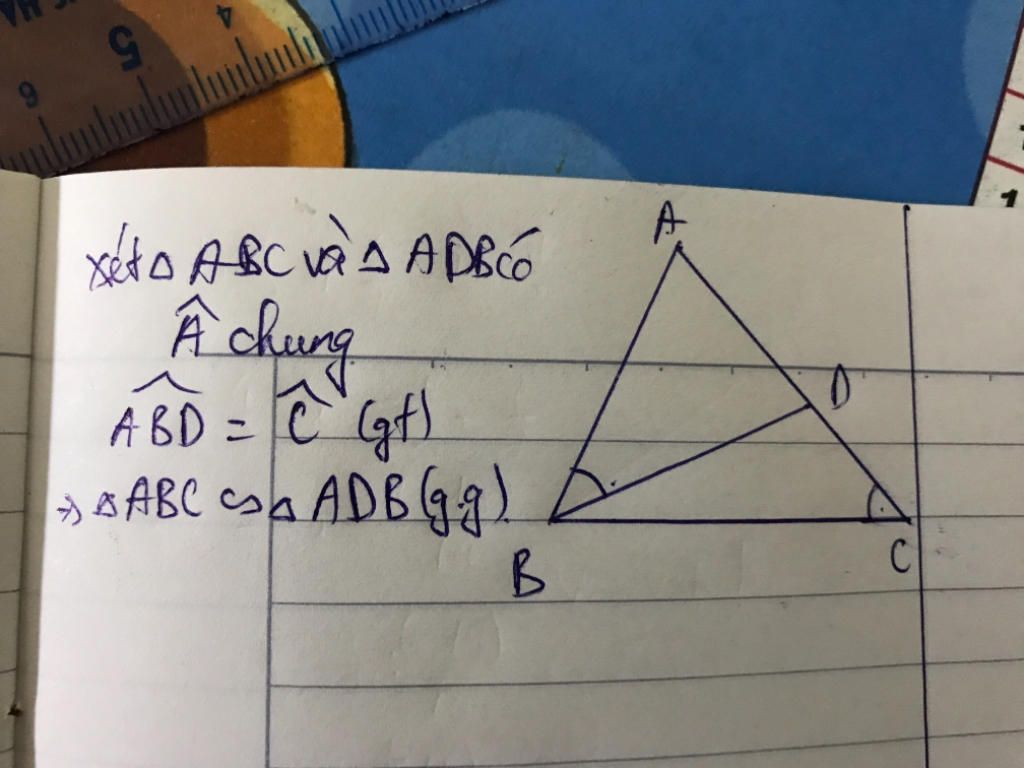 xét △ ABC và △ ADB có
Â chung
ABD̂ = Ĉ (gt)
=> △ ABC ∽ △ ADB (g.g).
A
D
B
C
4
5
6
1